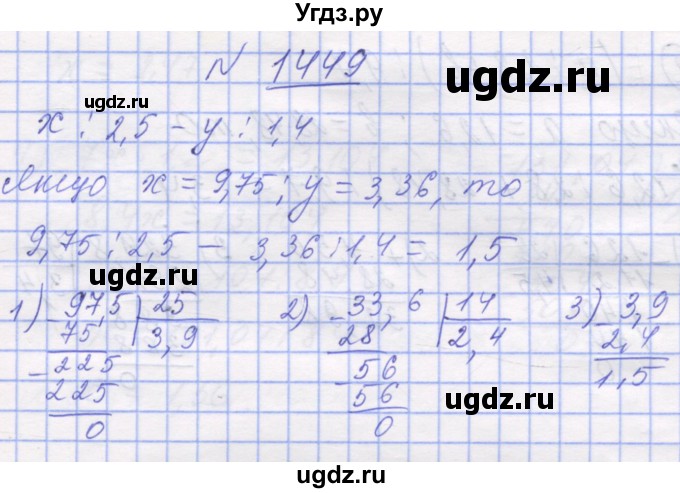 Угдз.ру
N 1449
ugdz.ru
ugdz.ru
x : 2,5 - y : 1,4
Якщо x = 9,75; y = 3,36, то
9,75 : 2,5 - 3,36 : 1,4 = 1,5
ugdz.ru
1) 975 | 25 2) 33,6 | 14 3) 3,9
- 75 3,9 - 28 2,4 - 2,4
- 225 - 56 1,5
225 56 ugdz.ru
0 0
ugdz.ru